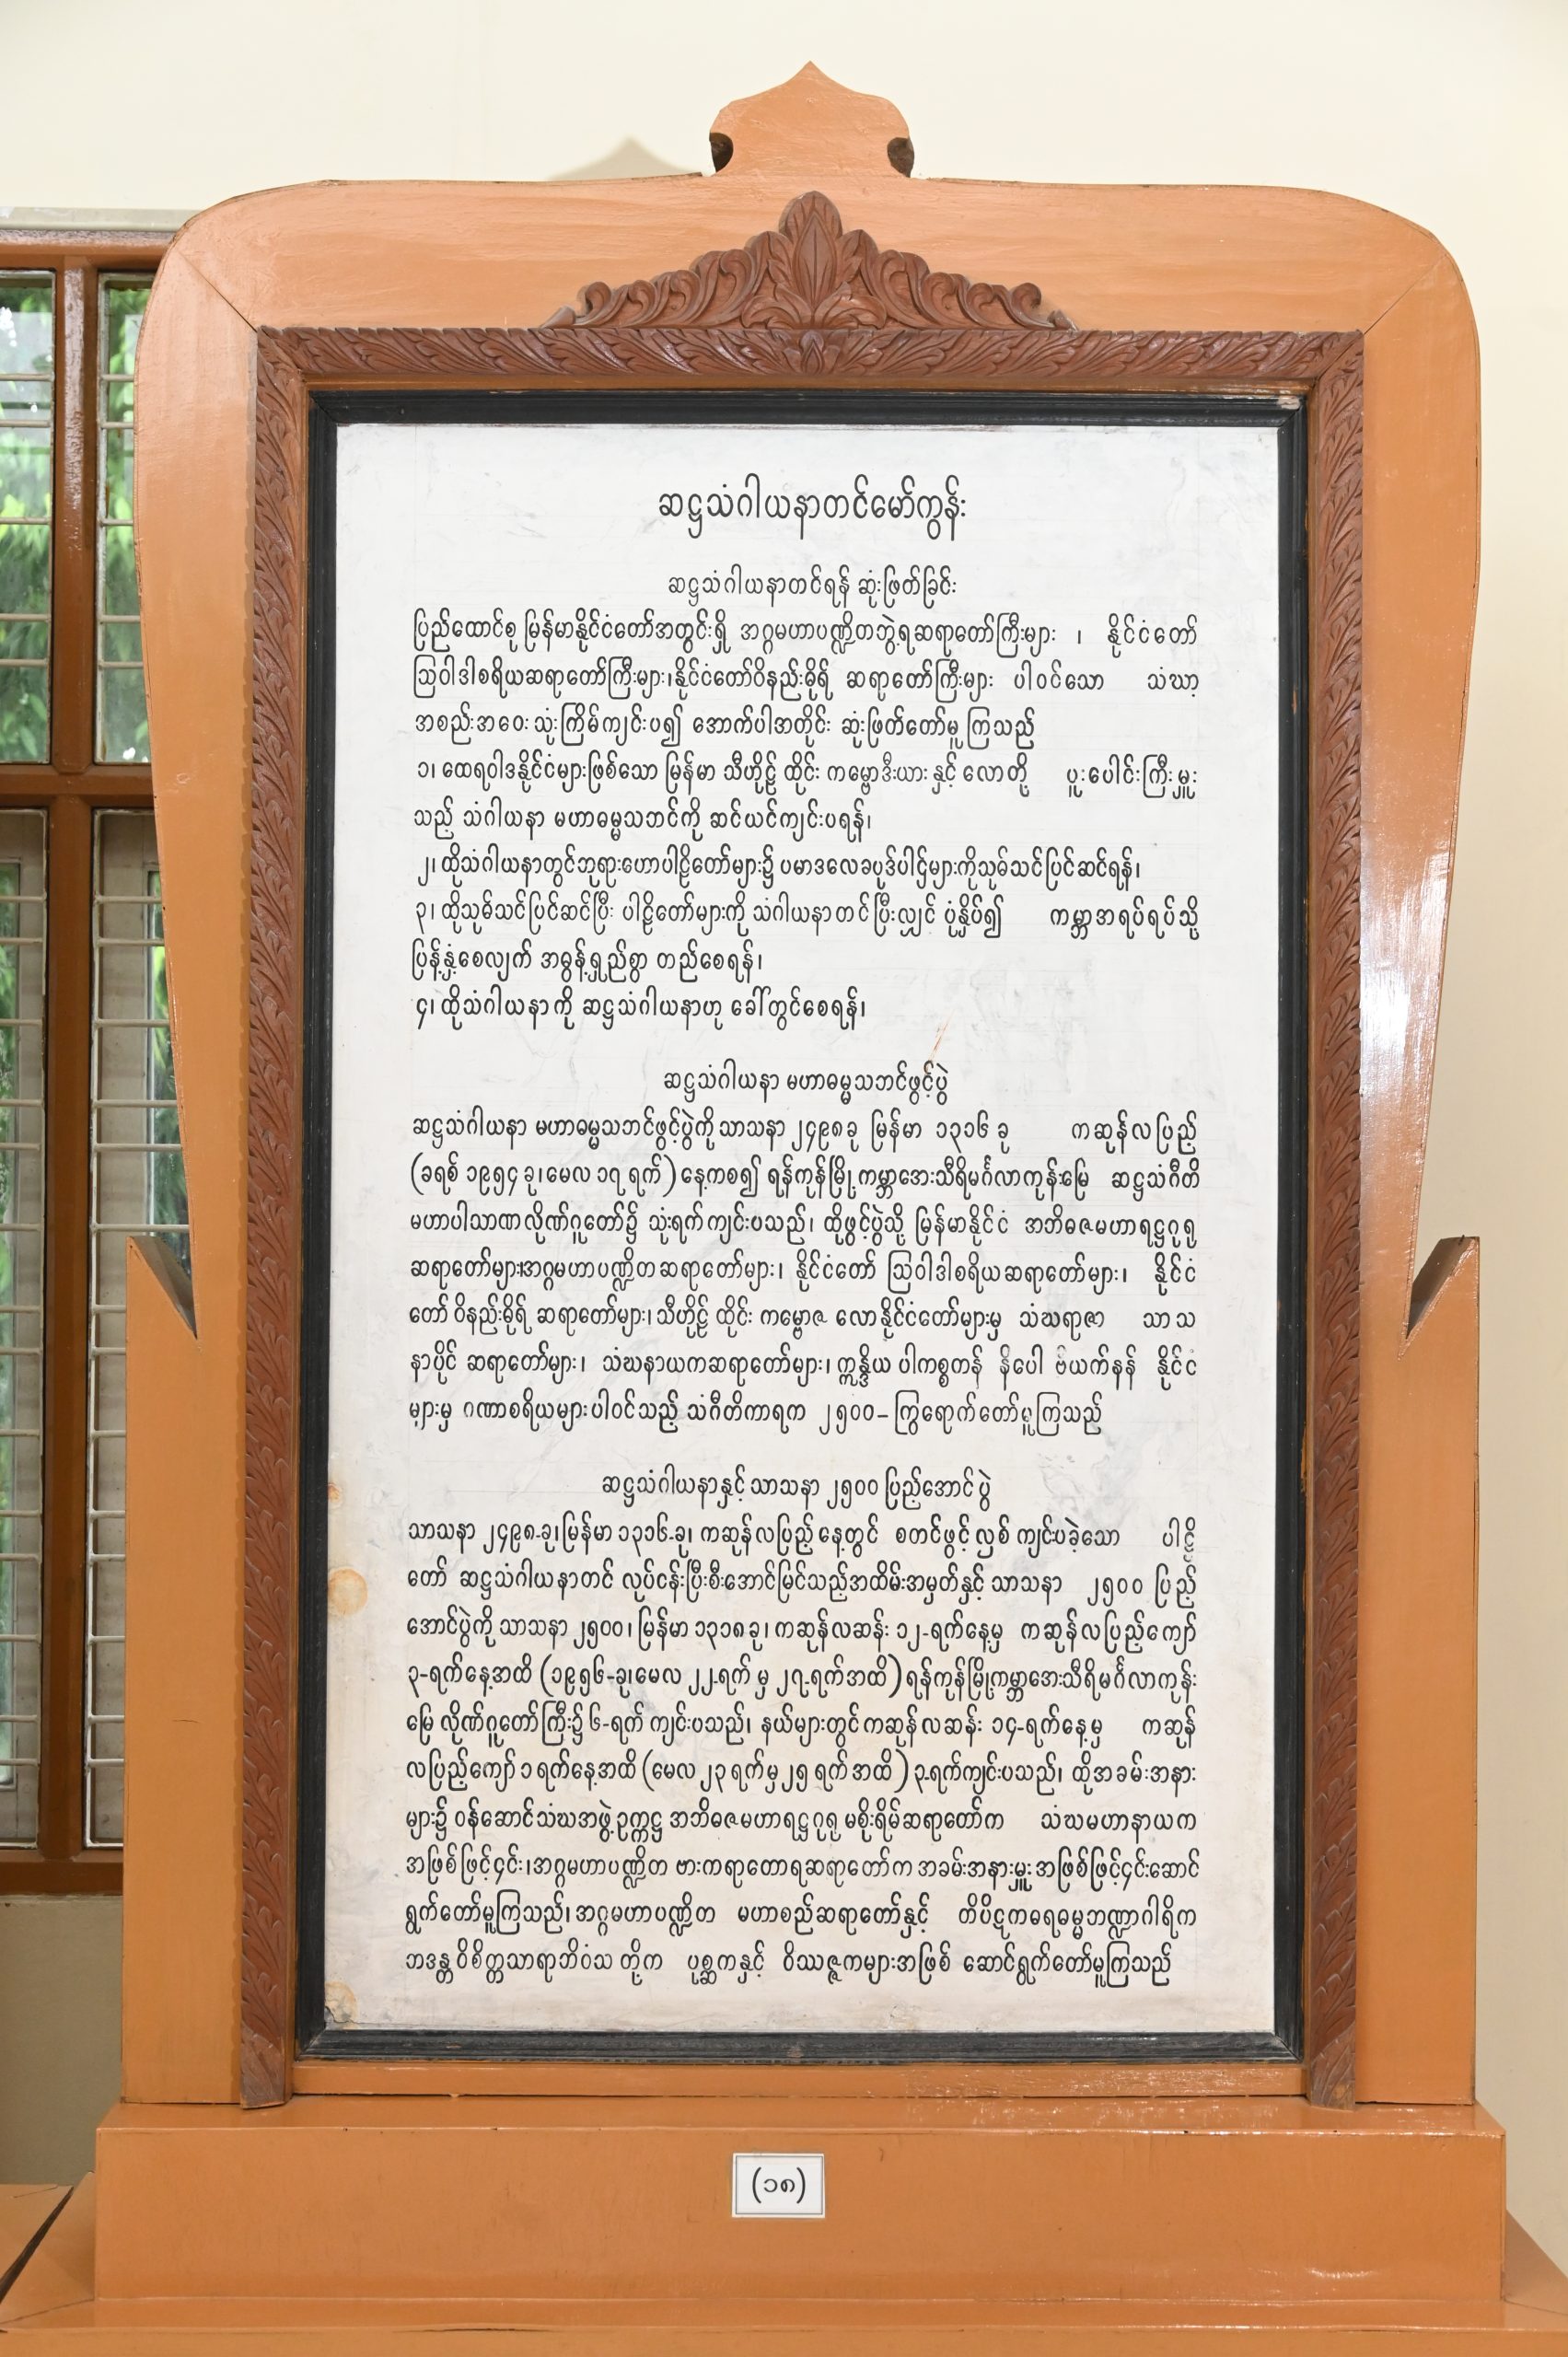 ဆဋ္ဌသံဂါယနာတင်မော်ကွန်း
ဆဋ္ဌသံဂါယနာတင်ရန် ဆုံးဖြတ်ခြင်း
ပြည်ထောင်စု မြန်မာနိုင်ငံတော်အတွင်းရှိ အဂ္ဂမဟာပဏ္ဍိတဘွဲ့ရဆရာတော်ကြီးများ ၊ နိုင်ငံတော်
ဩဝါဒါစရိယဆရာတော်ကြီးများ၊နိုင်ငံတော်ဝိနည်းဓိုရ် ဆရာတော်ကြီးများ ပါဝင်သော သံဃာ့
အစည်းအဝေး သုံးကြိမ်ကျင်းပ၍ အောက်ပါအတိုင်း ဆုံးဖြတ်တော်မူကြသည်
၁၊ ထေရဝါဒနိုင်ငံများဖြစ်သော မြန်မာ သီဟိုဠ် ထိုင်း ကမ္ဗောဒီးယား နှင့် လောတို့ ပူးပေါင်းကြီးမှူး
သည့် သံဂါယနာ မဟာဓမ္မသဘင်ကို ဆင်ယင်ကျင်းပရန်၊
၂၊ ထိုသံဂါယနာတွင်ဘုရားဟောပါဠိတော်များ၌ ပမာဒလေခပုဒ်ပါဌ်များကိုသုမ်သင်ပြင်ဆင်ရန်၊
၃၊ ထိုသုမ်သင်ပြင်ဆင်ပြီး ပါဠိတော်များကို သံဂါယနာတင်ပြီးလျှင် ပုံနှိပ်၍ ကမ္ဘာအရပ်ရပ်သို့
ပြန့်နှံ့စေလျက် အဓွန့်ရှည်စွာ တည်စေရန်၊
၄၊ ထိုသံဂါယနာကို ဆဋ္ဌသံဂါယနာဟု ခေါ်တွင်စေရန်၊
ဆဋ္ဌသံဂါယနာ မဟာဓမ္မသဘင်ဖွင့်ပွဲ
ဆဋ္ဌသံဂါယနာ မဟာဓမ္မသဘင်ဖွင့်ပွဲကို သာသနာ ၂၄၉၈ ခု မြန်မာ ၁၃၁၆ ခု ကဆုန်လပြည့်
(ခရစ် ၁၉၅၄ ခု၊ မေလ ၁၇ ရက်) နေ့ကစ၍ ရန်ကုန်မြို့ ကမ္ဘာအေးသီရိမင်္ဂလာကုန်းမြေ ဆဋ္ဌသံဂီတိ
မဟာပါသာဏလိုဏ်ဂူတော်၌ သုံးရက်ကျင်းပသည်၊ ထိုဖွင့်ပွဲသို့ မြန်မာနိုင်ငံ အဘိဓဇမဟာရဋ္ဌဂုရု
ဆရာတော်များ၊အဂ္ဂမဟာပဏ္ဍိတဆရာတော်များ၊ နိုင်ငံတော် ဩဝါဒါစရိယဆရာတော်များ၊ နိုင်ငံ
တော် ဝိနည်းဓိုရ် ဆရာတော်များ၊ သီဟိုဠ် ထိုင်း ကမ္ဗောဇ လောနိုင်ငံတော်များမှ သံဃရာဇာ သာသ
နာပိုင် ဆရာတော်များ၊ သံဃနာယကဆရာတော်များ၊ ဣန္ဒိယ ပါကစ္စတန် နီပေါ ဗီယက်နန် နိုင်ငံ
များမှ ဂဏာစရိယများပါဝင်သည့် သံဂီတိကာရက ၂၅၀၀-ကြွရောက်တော်မူကြသည်
ဆဋ္ဌသံဂါယနာနှင့် သာသနာ ၂၅၀၀ ပြည့်အောင်ပွဲ
သာသနာ ၂၄၉၈-ခု၊ မြန်မာ ၁၃၁၆-ခု၊ ကဆုန်လပြည့်နေ့တွင် စတင်ဖွင့်လှစ် ကျင်းပခဲ့သော ပါဠိ
တော် ဆဋ္ဌသံဂါယနာတင် လုပ်ငန်းပြီးစီးအောင်မြင်သည့်အထိမ်းအမှတ်နှင့် သာသနာ ၂၅၀၀ ပြည့်
အောင်ပွဲကို သာသနာ ၂၅၀၀၊ မြန်မာ ၁၃၁၈ ခု၊ ကဆုန်လဆန်း ၁၂-ရက်နေ့မှ ကဆုန်လပြည့်ကျော်
၃-ရက်နေ့အထိ (၁၉၅၆-ခု၊မေလ ၂၂-ရက် မှ ၂၇-ရက်အထိ) ရန်ကုန်မြို့ကမ္ဘာအေးသီရိမင်္ဂလာကုန်း
မြေ လိုဏ်ဂူတော်ကြီး၌ ၆-ရက် ကျင်းပသည်၊ နယ်များတွင် ကဆုန်လဆန်း ၁၄-ရက်နေ့မှ ကဆုန်
လပြည့်ကျော် ၁ ရက်နေ့အထိ (မေလ ၂၃ ရက်မှ ၂၅ ရက်အထိ) ၃-ရက်ကျင်းပသည်၊ ထိုအခမ်းအနား
များ၌ ဝန်ဆောင်သံဃအဖွဲ့ဥက္ကဋ္ဌ အဘိဓဇမဟာရဋ္ဌဂုရု မစိုးရိမ်ဆရာတော်က သံဃမဟာနာယက
အဖြစ်ဖြင့်၄င်း၊အဂ္ဂမဟာပဏ္ဍိတ ဗားကရာတောရဆရာတော်က အခမ်းအနားမှူးအဖြစ်ဖြင့်၄င်းဆောင်
ရွက်တော်မူကြသည်၊ အဂ္ဂမဟာပဏ္ဍိတ မဟာစည်ဆရာတော်နှင့် တိပိဋကဓရဓမ္မဘဏ္ဍာဂါရိက
ဘဒန္တ ဝိစိတ္တသာရာဘိဝံသ တို့က ပုစ္ဆကနှင့် ဝိဿဇ္ဇကများအဖြစ် ဆောင်ရွက်တော်မူကြသည်
(၁၈)